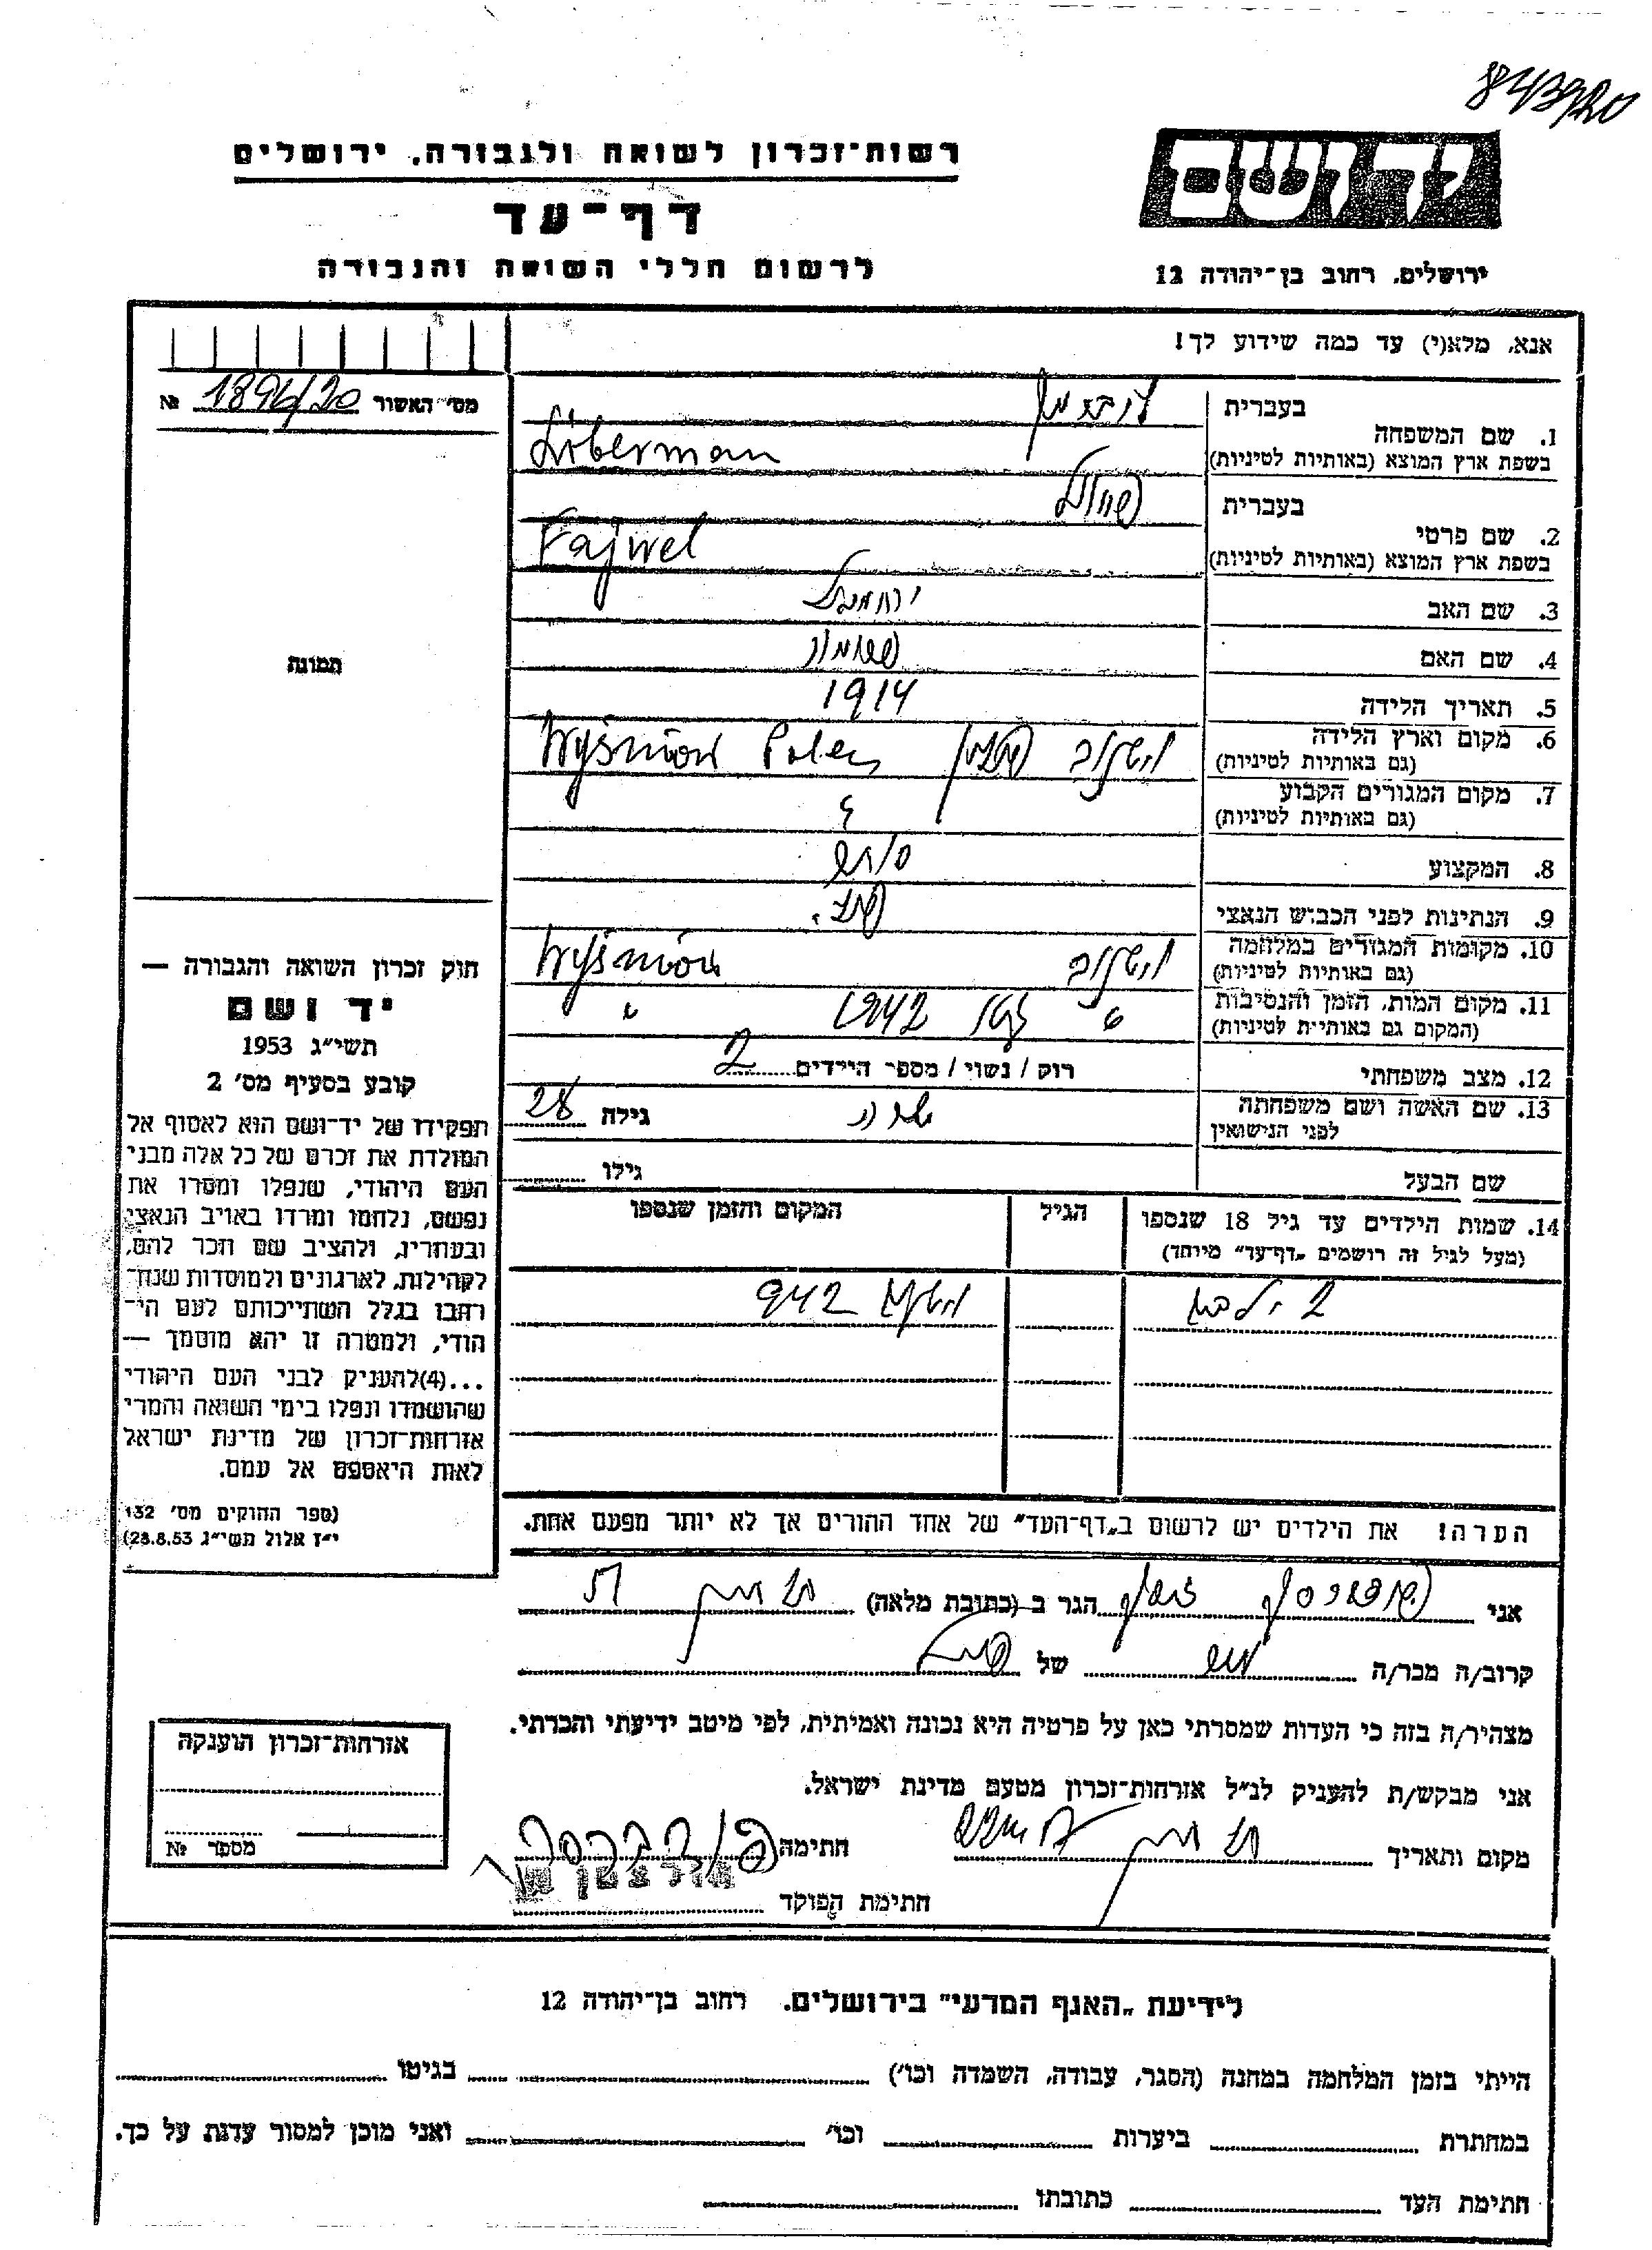 843920
רשות־זכרון לשואה ולגבורה, ירושלים
יד ושם
דף־עד
לרשום חללי השואה והגבורה
ירושלים, רחוב בן־יהודה 12
אנא, מלא(י) עד כמה שידוע לך!
מס׳ האשור 1894/20 №
1. שם המשפחה
בעברית ליברמן
בשפת ארץ המוצא (באותיות לטיניות) Liberman
2. שם פרטי
בעברית
בשפת ארץ המוצא (באותיות לטיניות) Fajwel
3. שם האב ירחמיאל
4. שם האם
5. תאריך הלידה 1914
6. מקום וארץ הלידה
(גם באותיות לטיניות) פולין Wyśmiów Polen
7. מקום המגורים הקבוע
(גם באותיות לטיניות)
8. המקצוע
9. הנתינות לפני הכבוש הנאצי פול.
10. מקומות המגורים במלחמה
(גם באותיות לטיניות) Wyśmiów
11. מקום המות, הזמן והנסיבות
(המקום גם באותיות לטיניות) " 1942 "
12. מצב משפחתי רוק / נשוי / מספר הילדים 2
13. שם האשה ושם משפחתה
לפני הנישואין שרה גילה 28
שם הבעל גילו
14. שמות הילדים עד גיל 18 שנספו
(מעל לגיל זה רושמים „דף־עד” מיוחד)
הגיל
המקום והזמן שנספו
2 ילדים 942
הערה! את הילדים יש לרשום ב„דף־העד” של אחד ההורים אך לא יותר מפעם אחת.
תמונה
חוק זכרון השואה והגבורה —
יד ושם
תשי״ג 1953
קובע בסעיף מס׳ 2
תפקידו של יד־ושם הוא לאסוף אל
המולדת את זכרם של כל אלה מבני
העם היהודי, שנפלו ומסרו את
נפשם, נלחמו ומרדו באויב הנאצי
ובעוזריו, ולהציב שם וזכר להם,
לקהילות, לארגונים ולמוסדות שנח־
רבו בגלל השתייכותם לעם הי־
הודי, ולמטרה זו יהא מוסמך —
...(4)להעניק לבני העם היהודי
שהושמדו ונפלו בימי השואה והמרי
אזרחות־זכרון של מדינת ישראל
לאות היאספם אל עמם.
(ספר החוקים מס׳ 132
י״ז אלול תשי״ג 28.8.53)
אני הגר ב (כתובת מלאה)
קרוב/ה מכר/ה של
מצהיר/ה בזה כי העדות שמסרתי כאן על פרטיה היא נכונה ואמיתית, לפי מיטב ידיעתי והכרתי.
אני מבקש/ת להעניק לנ״ל אזרחות־זכרון מטעם מדינת ישראל.
מקום ותאריך חתימה
חתימת הפוקד
אזרחות־זכרון הוענקה
מספר №
לידיעת „האגף המדעי” בירושלים. רחוב בן־יהודה 12
הייתי בזמן המלחמה במחנה (הסגר, עבודה, השמדה וכו׳) בגיטו
במחתרת ביערות וכו׳ ואני מוכן למסור עדות על כך.
חתימת העד כתובתו